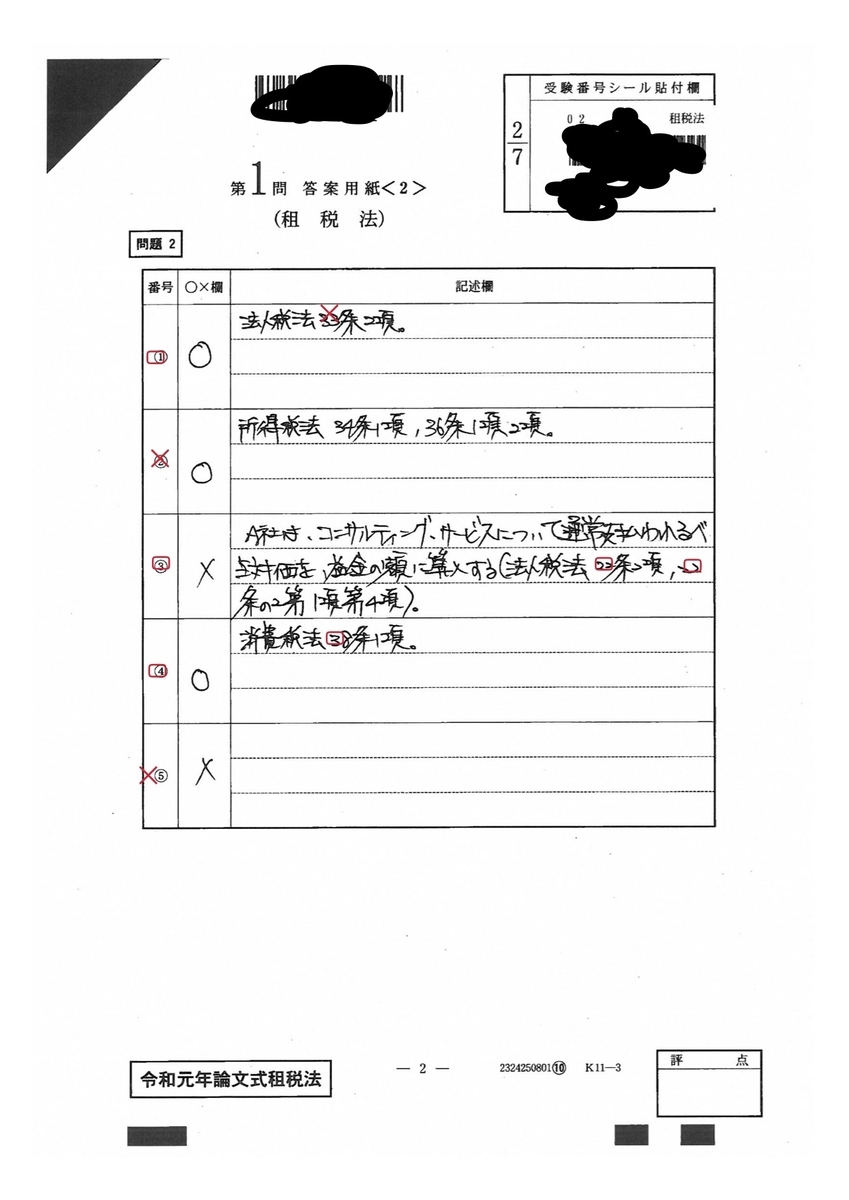 受験番号シール貼付欄
2/7
02 租税法
第1問 答案用紙<2>
(租税法)
問題 2
番号 ○×欄 記述欄
① ○ 法人税法33条2項。
② ○ 所得税法 34条1項,36条1項、2項。
③ × A社は、コンサルティング・サービスについて通常支払われるべ
き対価を、益金の額に算入する(法人税法22条2項,22
条の2第1項第4項)。
④ ○ 消費税法38条1項。
⑤ ×
令和元年論文式租税法
— 2 —
2324250801⑩ K11—3
評点